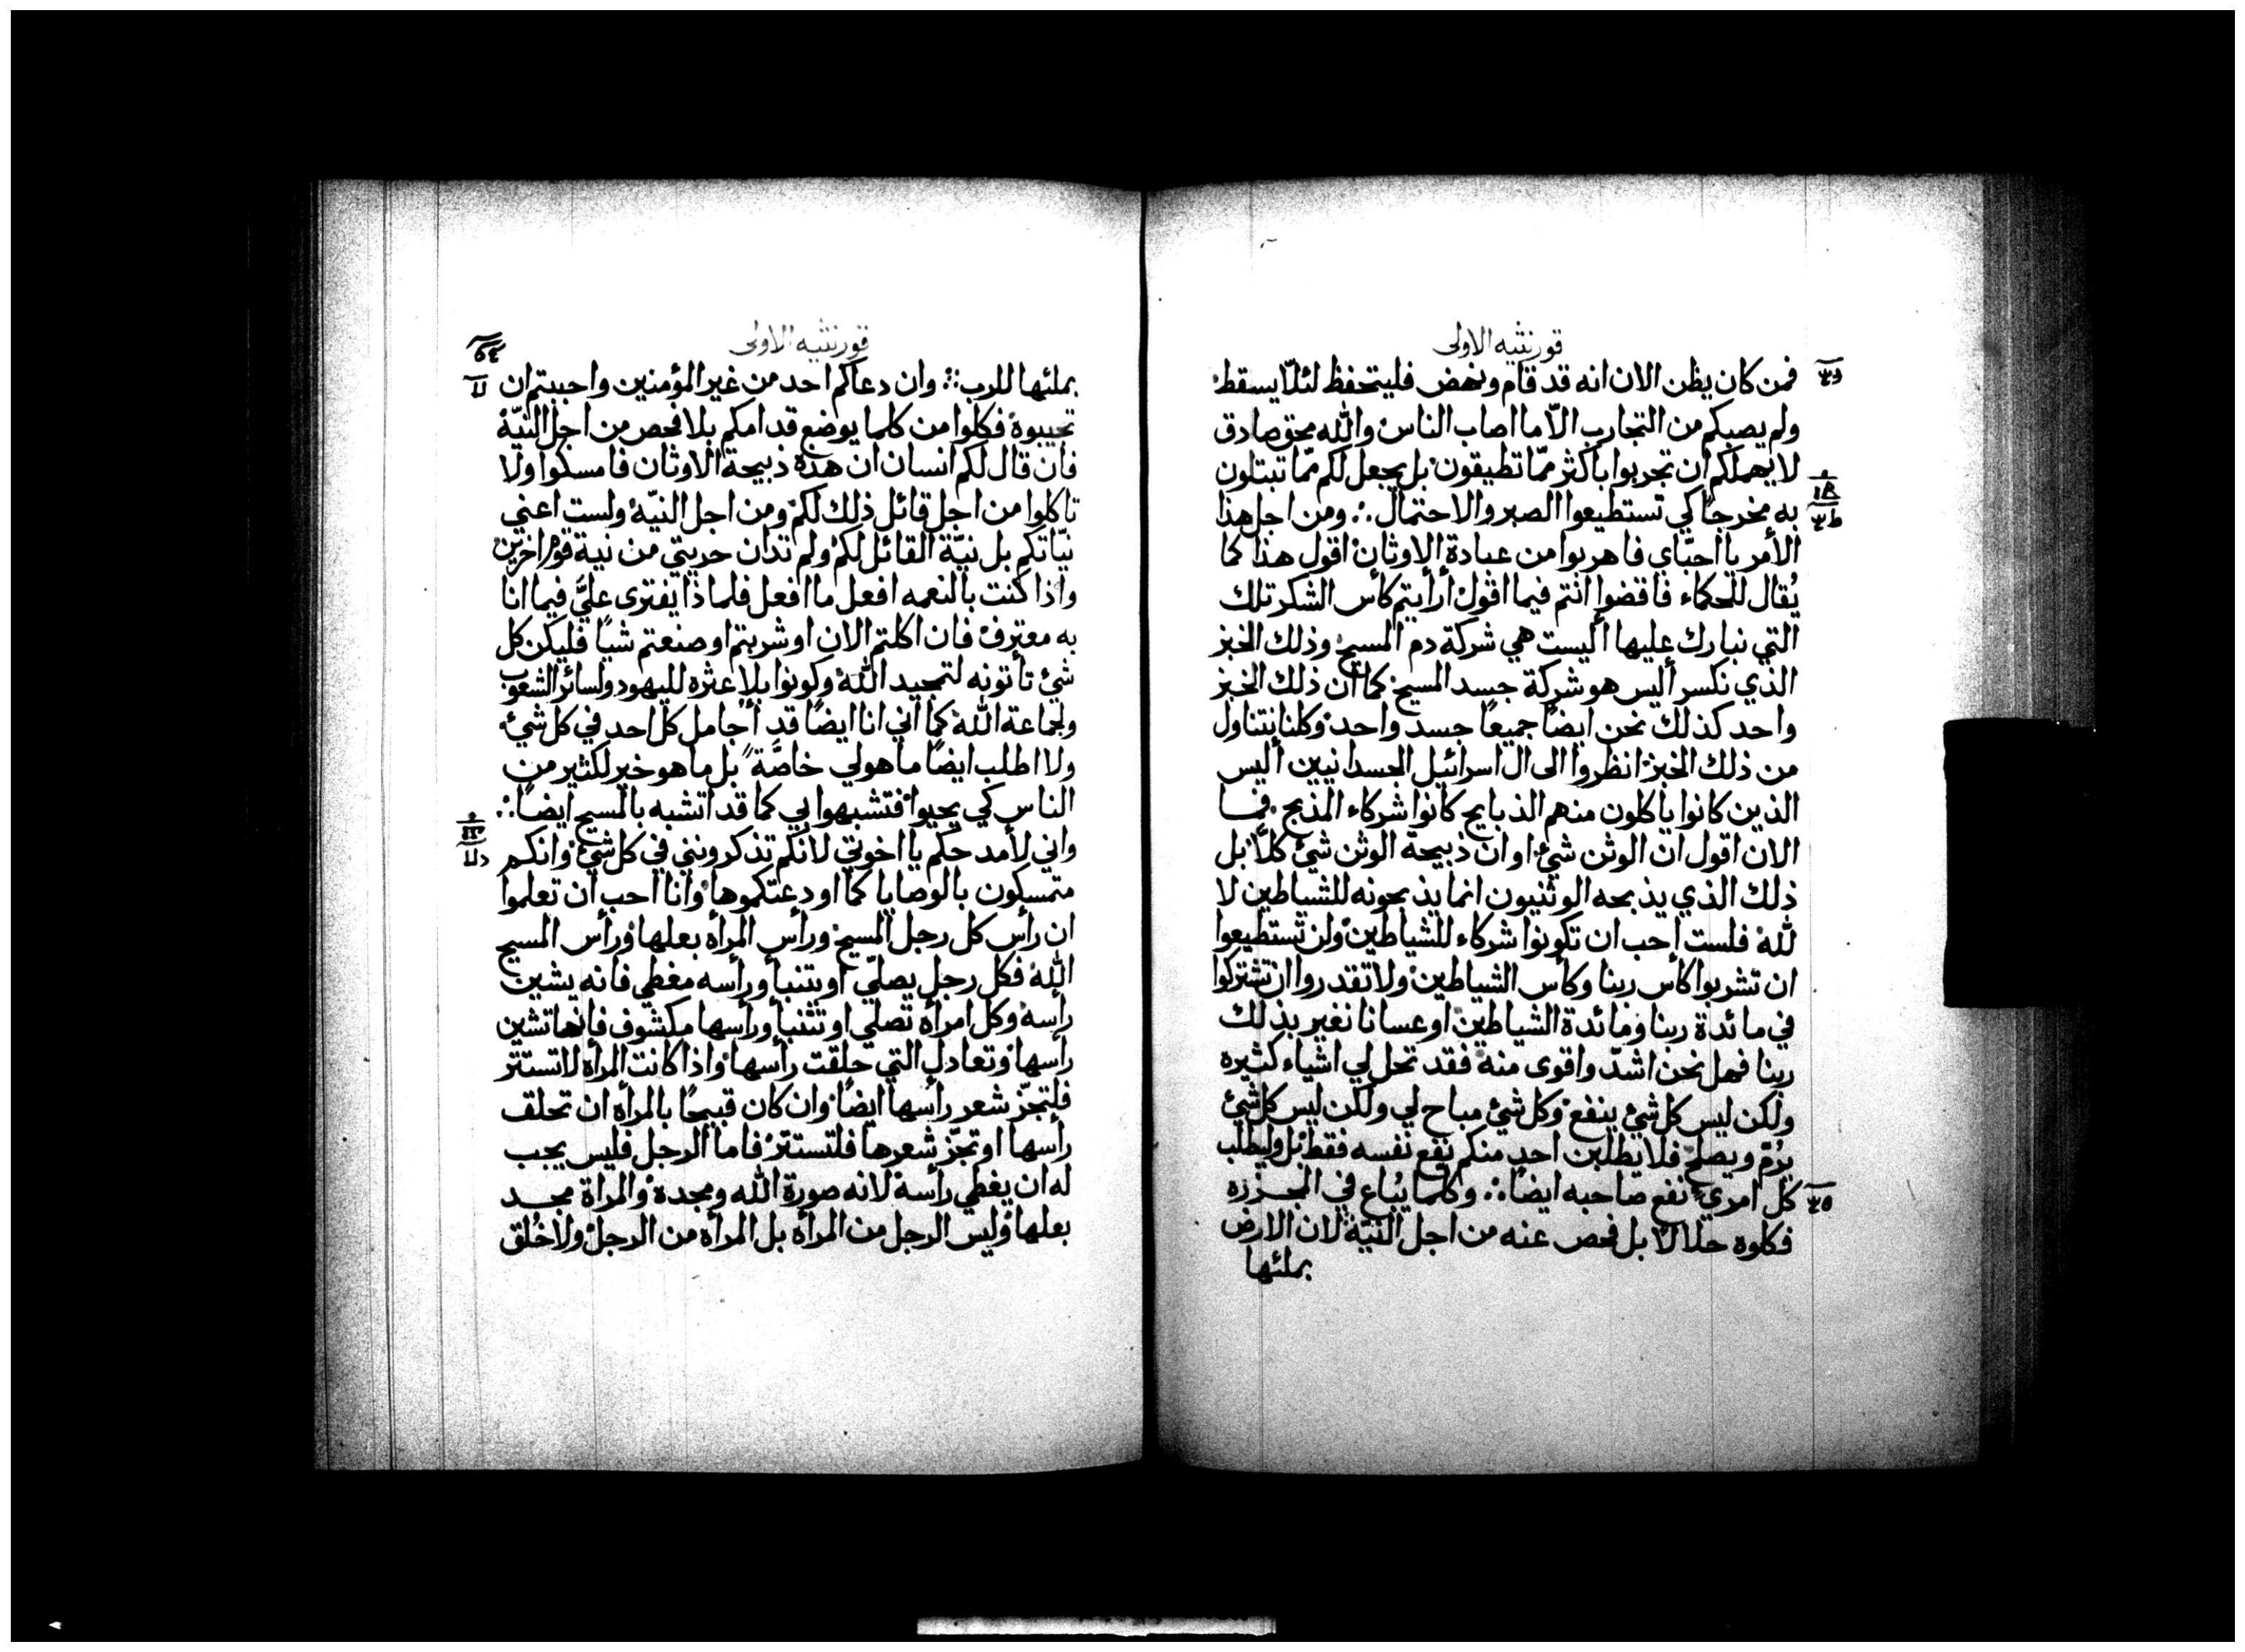 قورنثيه الاولى
فمن كان يظن الان انه قد قام ونهض فليتحفظ لئلّا يسقط
ولم يصبكم من التجارب الّا ما اصاب الناس والله محق صادق
لا يهملكم ان تجربوا باكثر ممّا تطيقون بل يجعل لكم ممّا تبتلون
به مخرجًا كي تستطيعوا الصبر والاحتمال ∴ ومن اجل هذا
الأمر يا احبّاي فاهربوا من عبادة الاوثان اقول هذا كما
يُقال للحكماء فاقضوا انتم فيما اقول أرأيتم كأس الشكر تلك
التي نبارك عليها أليست هي شركة دم المسيح وذلك الخبز
الذي نكسر أليس هو شركة جسد المسيح كما ان ذلك الخبز
واحد كذلك نحن ايضًا جميعًا جسد واحد وكلنا نتناول
من ذلك الخبز انظروا الى ال اسرائيل الجسدانيين أليس
الذين كانوا ياكلون منهم الذبايح كانوا شركاء المذبح فما
الان اقول ان الوثن شيء او ان ذبيحة الوثن شيء كلّا بل
ذلك الذي يذبحه الوثنيون انما يذبحونه للشياطين لا
لله فلست احب ان تكونوا شركاء للشياطين ولن تستطيعوا
ان تشربوا كاس ربنا وكأس الشياطين ولا تقدروا ان تشتركوا
في مائدة ربنا ومائدة الشياطين او عسانا نغير بذلك
ربنا فهل نحن اشدّ واقوى منه فقد تحل لي اشياء كثيره
ولكن ليس كل شيء ينفع وكل شيء مباح لي ولكن ليس كل شيء
يرُمّ ويصلح فلا يطلبن احد منكم نفع نفسه فقط بل وليطلب
كل امرئ نفع صاحبه ايضًا ∴ وكلما يُباع في المجزره
فكلوه حلالًا بل فحص عنه من اجل النيّة لان الارض
بملئها
قورنثيه الاولى
بملئها للرب ∴ وان دعاكم احد من غير المؤمنين واحببتم ان
تجيبوه فكلوا من كلما يوضع قدامكم بلا فحص من اجل النيّة
فان قال لكم انسان ان هذه ذبيحة الاوثان فامسكوا ولا
تاكلوا من اجل قائل ذلك لكم ومن اجل النيّة ولست اعني
نيّاتكم بل نيّة القائل لكم ولم تدان حريتي من نية قوم اخرين
واذا كنت بالنعمه افعل ما افعل فلماذا يفترى عليَّ فيما انا
به معترف فان اكلتم الان او شربتم او صنعتم شيًا فليكن كل
شيء تأتونه لتمجيد الله وكونوا بلا عثره لليهود ولسائر الشعوب
ولجماعة الله كما اني انا ايضًا قد أجامل كل احد في كل شيء
ولا اطلب ايضًا ما هو لي خاصّة بل ما هو خير لكثير من
الناس كي يحيوا فتشبهوا بي كما قد اتشبه بالمسيح ايضًا ∴
واني لأمدحكم يا اخوتي لانكم تذكرونني في كل شيء وانكم
متمسكون بالوصايا كما اودعتكموها وانا احب ان تعلموا
ان رأس كل رجل المسيح ورأس المرأه بعلها ورأس المسيح
الله فكل رجل يصلّي او يتنبأ ورأسه مغطي فانه يشين
رأسه وكل امرأه تصلي او تتنبأ ورأسها مكشوف فإنها تشين
رأسها وتعادل التي حلقت رأسها واذا كانت المرأه لا تستتر
فلتجزّ شعر رأسها ايضًا وان كان قبيحًا بالمرأه ان تحلق
رأسها او تجزّ شعرها فلتستتر فاما الرجل فليس يجب
له ان يغطي رأسه لانه صورة الله ومجده والمراة مجد
بعلها وليس الرجل من المرأه بل المرأه من الرجل ولا خُلق